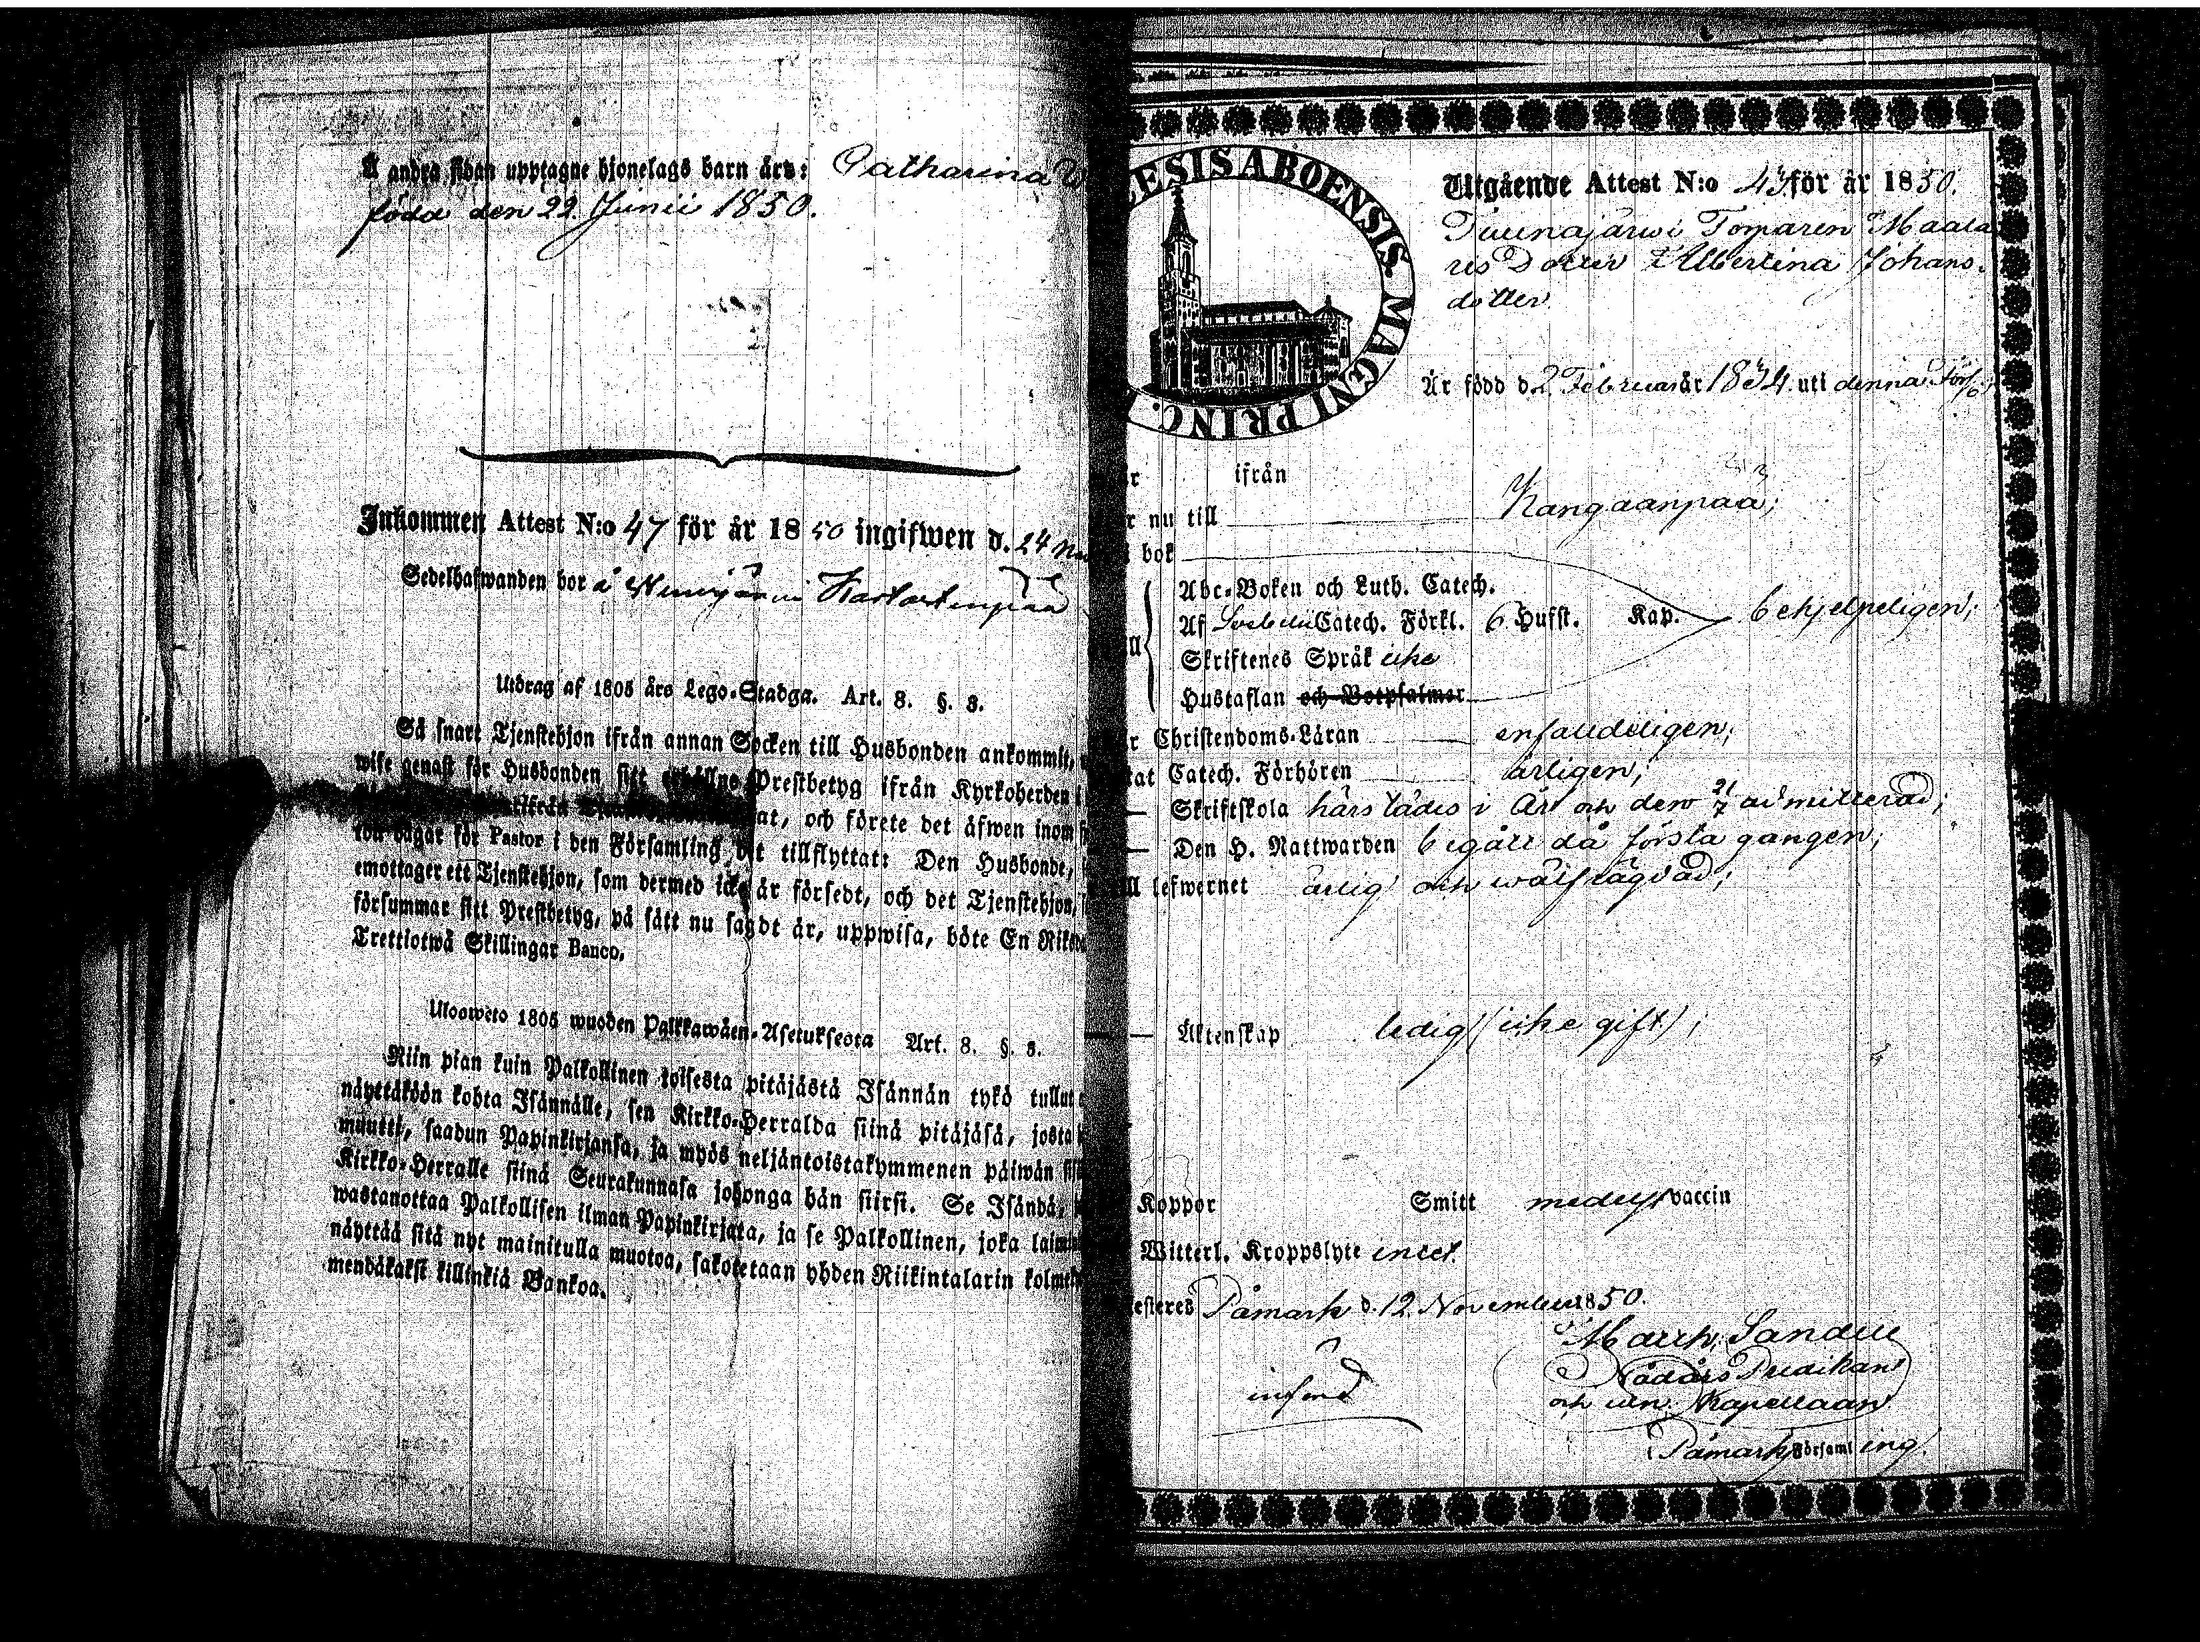 Å andra sidan upptagne hjonelags barn äro: Catharina W
född den 22 Junii 1850.
Inkommen Attest N:o 47 för år 1850 ingifwen d. 24
Sedelhafwanden bor å
Utdrag af 1805 års Lego-Stadga. Art. 8. §. 3.
Så snart Tjenstehjon ifrån annan Socken till Husbonden ankommit,
wise genast för Husbonden sitt erhållne Prestbetyg ifrån Kyrkoherden i
at, och förete det äfwen inom
ton dagar för Pastor i den Församling det tillflyttat: Den Husbonde,
emottager ett Tjenstehjon, som dermed icke är försedt, och det Tjenstehjon,
försummar sitt Prestbetyg, på sätt nu sagdt är, uppwisa, böte En Riksda
Trettiotwå Skillingar Banco.
Ulosweto 1805 wuoden Palkkawäen-Asetuksesta Art. 8. §. 3.
Niin pian kuin Palkollinen toisesta pitäjästä Isännän tykö tullut
näyttäköön kohta Isännälle, sen Kirkko-Herralda siinä pitäjäsä, josta
muutti, saadun Papinkirjansa, ja myös neljäntoistakymmenen päiwän sis
Kirkko-Herralle siinä Seurakunnasa johonga hän siirsi. Se Isändä,
wastanottaa Palkollisen ilman Papinkirjata, ja se Palkollinen, joka laimin
näyttää sitä nyt mainitulla muotoa, sakotetaan yhden Riikintalarin kolme
mendäkaksi killinkiä Bankoa.
ESIS ABOENSIS. MAGNI PRINC.
Utgående Attest N:o 43 för år 1850.
Tuunajärwi Tomaren Maata
res Dotter Albertina Johans-
dotter
Är född d. 2 Februari år 1834 uti denna Förs.
ifrån
nu till Kangaanpää;
bok
Abc-Boken och Luth. Catech.
Af Svebelii Catech. Förkl. 6 Hufst. Kap. behjelpeligen;
Skriftenes Språk icke
Hustaflan och Botpsalmer
Christendoms-Läran enfaldeligen;
tat Catech. Förhören årligen;
Skriftskola härstädes i År och den 21/7 admitterad;
Den H. Nattwarden begått då första gången;
ll lefwernet ärlig och wälfrägdad;
Äktenskap ledig (icke gift);
Koppor Smitt medelst vaccin
Witterl. Kroppslyte intet.
esteres Påmark d. 12 November 1850.
Matth. Sandell
Nådårs Predikant
och wen. Kapellaan
införd
Påmark Församling.